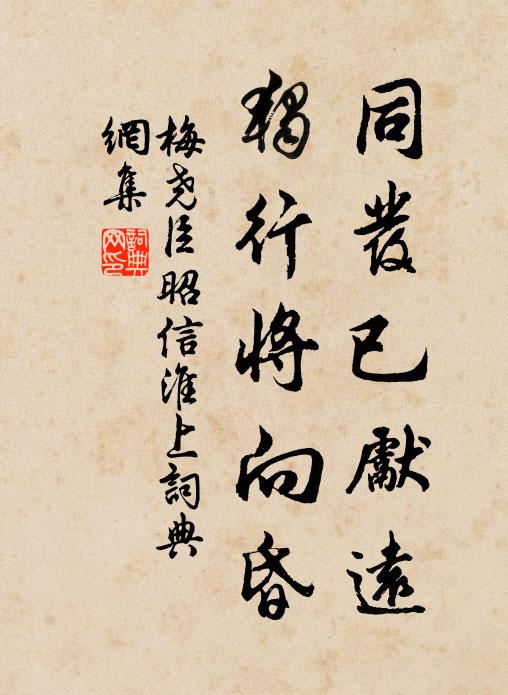 同發已獻遠
獨行將向昏
梅堯臣昭信淮上詞典
網集
詞典網印